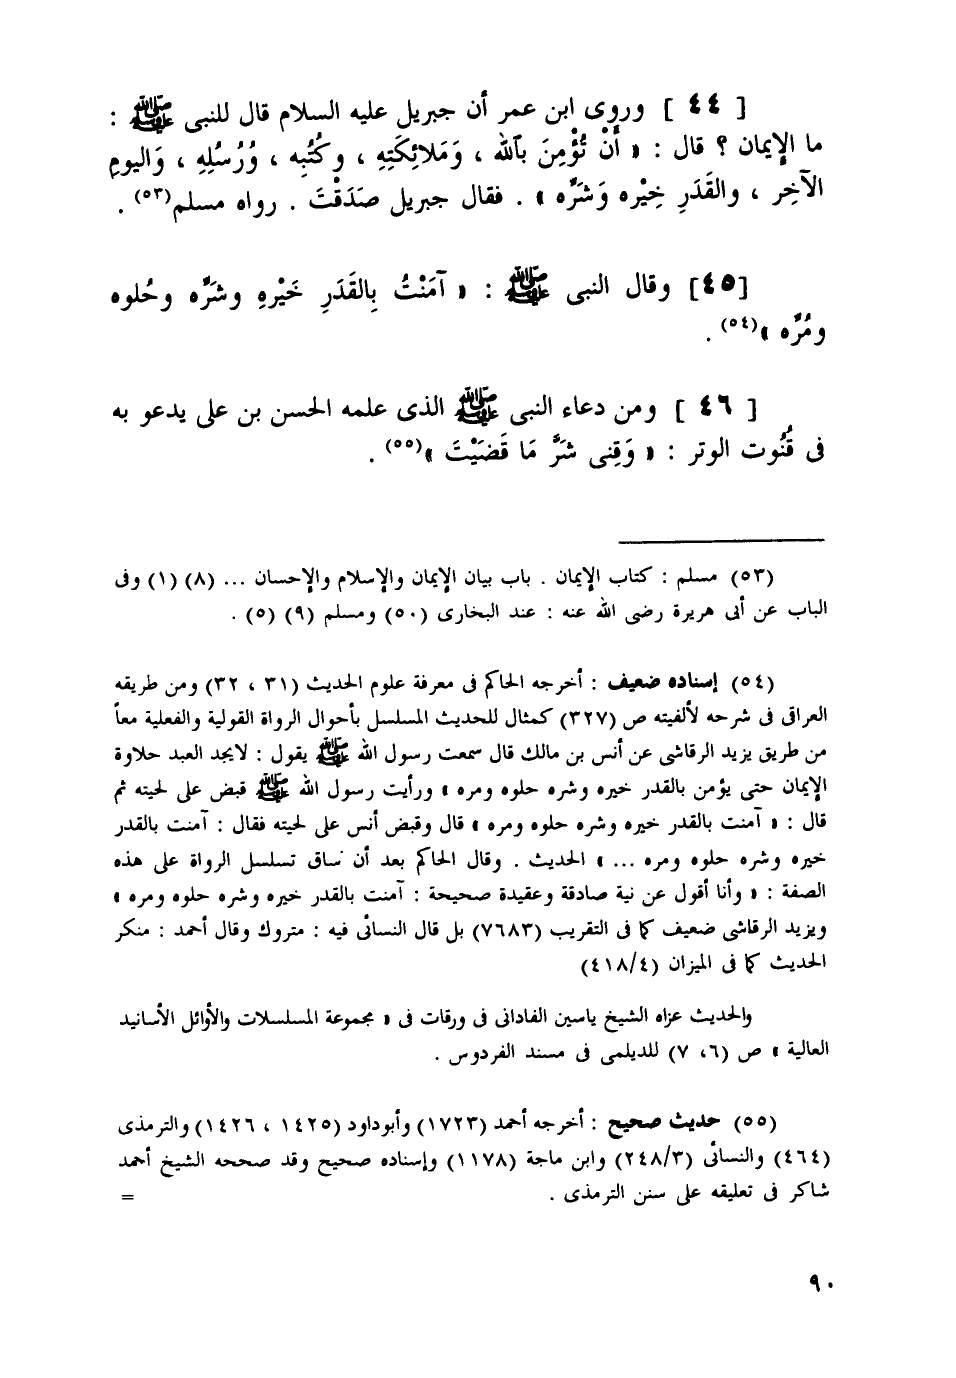 [ ٤٤ ] وروى ابن عمر أن جبريل عليه السلام قال للنبى ﷺ :
ما الإيمان ؟ قال : « أَنْ تُؤْمِنَ بآلله ، وَمَلائِكَتِهِ ، وكُتُبِه ، وَرُسُلِهِ ، وَاليومِ
الآخِر ، والقَدَرِ خِيْره وَشَرِّه » . فقال جبريل صَدَقْتَ . رواه مسلم(٥٣) .
[٤٥] وقال النبى ﷺ : « آمَنْتُ بِالقَدَرِ خَيْرهِ وشَرِّه وحُلوه
ومُرِّه »(٥٤) .
[ ٤٦ ] ومن دعاء النبى ﷺ الذى علمه الحسن بن على يدعو به
فى قُنُوت الوتر : « وَقِنى شَرَّ مَا قَضَيْتَ »(٥٥) .
(٥٣) مسلم : كتاب الإيمان . باب بيان الإيمان والإسلام والإحسان ... (٨) (١) وفى
الباب عن أبى هريرة رضى الله عنه : عند البخارى (٥٠) ومسلم (٩) (٥) .
(٥٤) إسناده ضعيف : أخرجه الحاكم فى معرفة علوم الحديث (٣١ ، ٣٢) ومن طريقه
العراقى فى شرحه لألفيته ص (٣٢٧) كمثال للحديث المسلسل بأحوال الرواة القولية والفعلية معاً
من طريق يزيد الرقاشى عن أنس بن مالك قال سمعت رسول الله ﷺ يقول : لايجد العبد حلاوة
الإيمان حتى يؤمن بالقدر خيره وشره حلوه ومره » ورأيت رسول الله ﷺ قبض على لحيته ثم
قال : « آمنت بالقدر خيره وشره حلوه ومره » قال وقبض أنس على لحيته فقال : آمنت بالقدر
خيره وشره حلوه ومره ... » الحديث . وقال الحاكم بعد أن ساق تسلسل الرواة على هذه
الصفة : « وأنا أقول عن نية صادقة وعقيدة صحيحة : آمنت بالقدر خيره وشره حلوه ومره »
ويزيد الرقاشى ضعيف كما فى التقريب (٧٦٨٣) بل قال النسائى فيه : متروك وقال أحمد : منكر
الحديث كما فى الميزان (٤١٨/٤)
والحديث عزاه الشيخ ياسين الفادانى فى ورقات فى « مجموعة المسلسلات والأوائل الأسانيد
العالية » ص (٦، ٧) للديلمى فى مسند الفردوس .
(٥٥) حديث صحيح : أخرجه أحمد (١٧٢٣) وأبوداود (١٤٢٥ ، ١٤٢٦) والترمذى
(٤٦٤) والنسائى (٢٤٨/٣) وابن ماجة (١١٧٨) وإسناده صحيح وقد صححه الشيخ أحمد
شاكر فى تعليقه على سنن الترمذى . =
٩٠